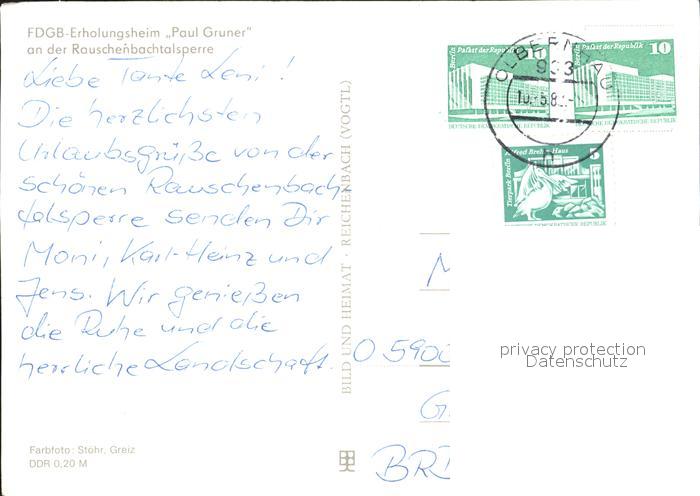 FDGB-Erholungsheim „Paul Gruner"
an der Rauschenbachtalsperre
Liebe Tante Leni!
Die herzlichsten
Urlaubsgrüße von der
schönen Rauschenbach-
talsperre senden Dir
Moni, Karl-Heinz und
Jens. Wir genießen
die Ruhe und die
herrliche Landschaft.
Farbfoto: Stöhr, Greiz
DDR 0,20 M
BILD UND HEIMAT · REICHENBACH (VOGTL)
Berlin Palast der Republik 10
DEUTSCHE DEMOKRATISCHE REPUBLIK
Berlin Palast der Republik 10
DEUTSCHE DEMOKRATISCHE REPUBLIK
OLBERNHAU
933
Tierpark Berlin Alfred Brehm-Haus 5
DEMOKRATISCHE REPUBLIK
M
O 5900
G
BRD
privacy protection
Datenschutz